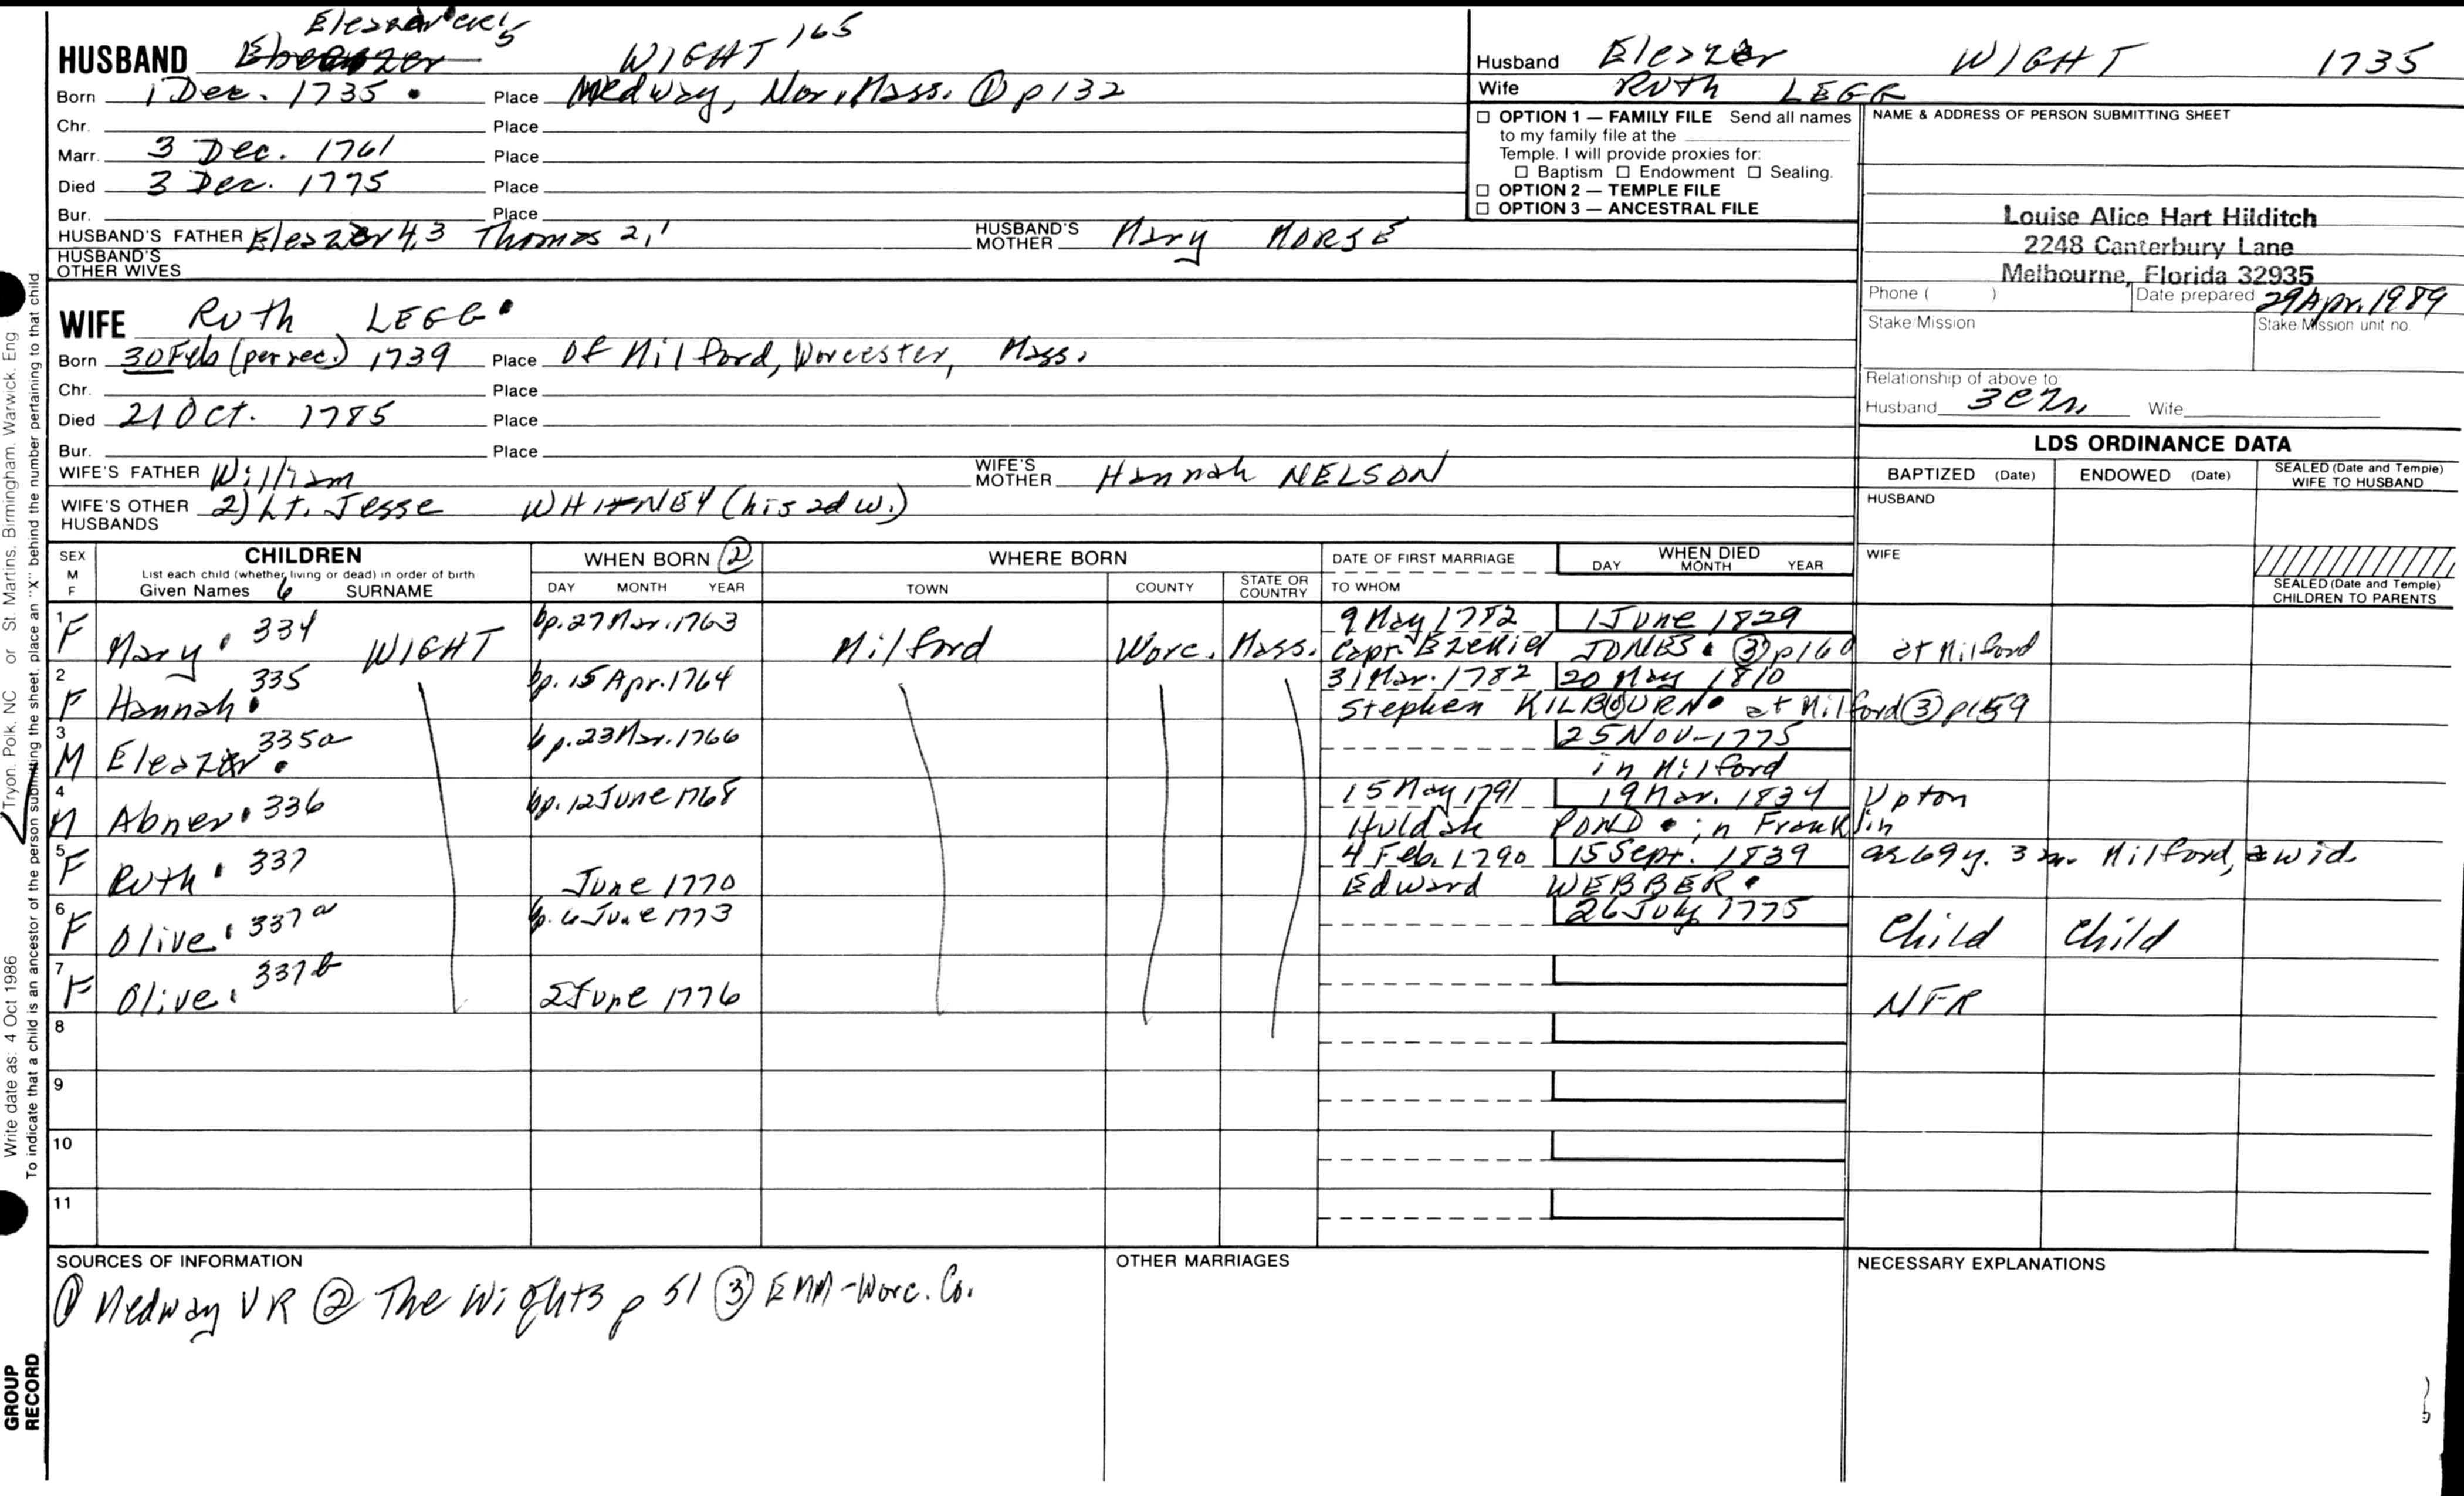 Eleazar
HUSBAND Ebenezer 5 WIGHT 165
Born 1 Dec. 1735 • Place Medway, Nor., Mass. ① p 132
Chr. Place
Marr. 3 Dec. 1761 Place
Died 3 Dec. 1775 Place
Bur. Place
HUSBAND'S FATHER Eleazer 4,3 Thomas 2,1 HUSBAND'S MOTHER Mary MORSE
HUSBAND'S OTHER WIVES
WIFE Ruth LEGG •
Born 30 Feb (per rec.) 1739 Place Of Milford, Worcester, Mass.
Chr. Place
Died 21 Oct. 1785 Place
Bur. Place
WIFE'S FATHER William WIFE'S MOTHER Hannah NELSON
WIFE'S OTHER HUSBANDS 2) Lt. Jesse WHITNEY (his 2d w.)
Husband Eleazer WIGHT 1735
Wife Ruth LEGG
☐ OPTION 1 — FAMILY FILE Send all names
to my family file at the
Temple. I will provide proxies for:
☐ Baptism ☐ Endowment ☐ Sealing.
☐ OPTION 2 — TEMPLE FILE
☐ OPTION 3 — ANCESTRAL FILE
NAME & ADDRESS OF PERSON SUBMITTING SHEET
Louise Alice Hart Hilditch
2248 Canterbury Lane
Melbourne, Florida 32935
Phone ( ) Date prepared 29 Apr. 1989
Stake/Mission Stake Mission unit no.
Relationship of above to
Husband Wife
LDS ORDINANCE DATA
BAPTIZED (Date) ENDOWED (Date) SEALED (Date and Temple) WIFE TO HUSBAND
HUSBAND
WIFE
SEALED (Date and Temple)
CHILDREN TO PARENTS
SEX M F CHILDREN WHEN BORN ② WHERE BORN DATE OF FIRST MARRIAGE WHEN DIED
List each child (whether living or dead) in order of birth
Given Names 6 SURNAME DAY MONTH YEAR TOWN COUNTY STATE OR COUNTRY TO WHOM DAY MONTH YEAR
1 F Mary • 334 WIGHT bp. 27 Mar. 1763 Milford Worc. Mass. 9 May 1782 1 June 1829
Capt. Ezekiel JONES • ③ p160 at Milford
2 F Hannah • 335 bp. 15 Apr. 1764 31 Mar. 1782 20 May 1810
Stephen KILBOURN • at Milford ③ p159
3 M Eleazer • 335a bp. 23 Mar. 1766 25 Nov - 1775
in Milford
4 M Abner • 336 bp. 12 June 1768 15 May 1791 19 Mar. 1834 Upton
Huldah POND • in Franklin
5 F Ruth • 337 June 1770 4 Feb. 1790 15 Sept. 1839 ae 69 y. 3 m. Milford, a wid.
Edward WEBBER •
6 F Olive • 337a bp. 6 June 1773 26 July 1775 Child Child
7 F Olive • 337b 2 June 1776 NFR
8
9
10
11
SOURCES OF INFORMATION
① Medway VR ② The Wights p 51 ③ EMM - Worc. Co.
OTHER MARRIAGES
NECESSARY EXPLANATIONS
Tryon, Polk, NC or St. Martins, Birmingham, Warwick, Eng
Write date as: 4 Oct 1986
To indicate that a child is an ancestor of the person submitting the sheet, place an "X" behind the number pertaining to that child.
GROUP
RECORD